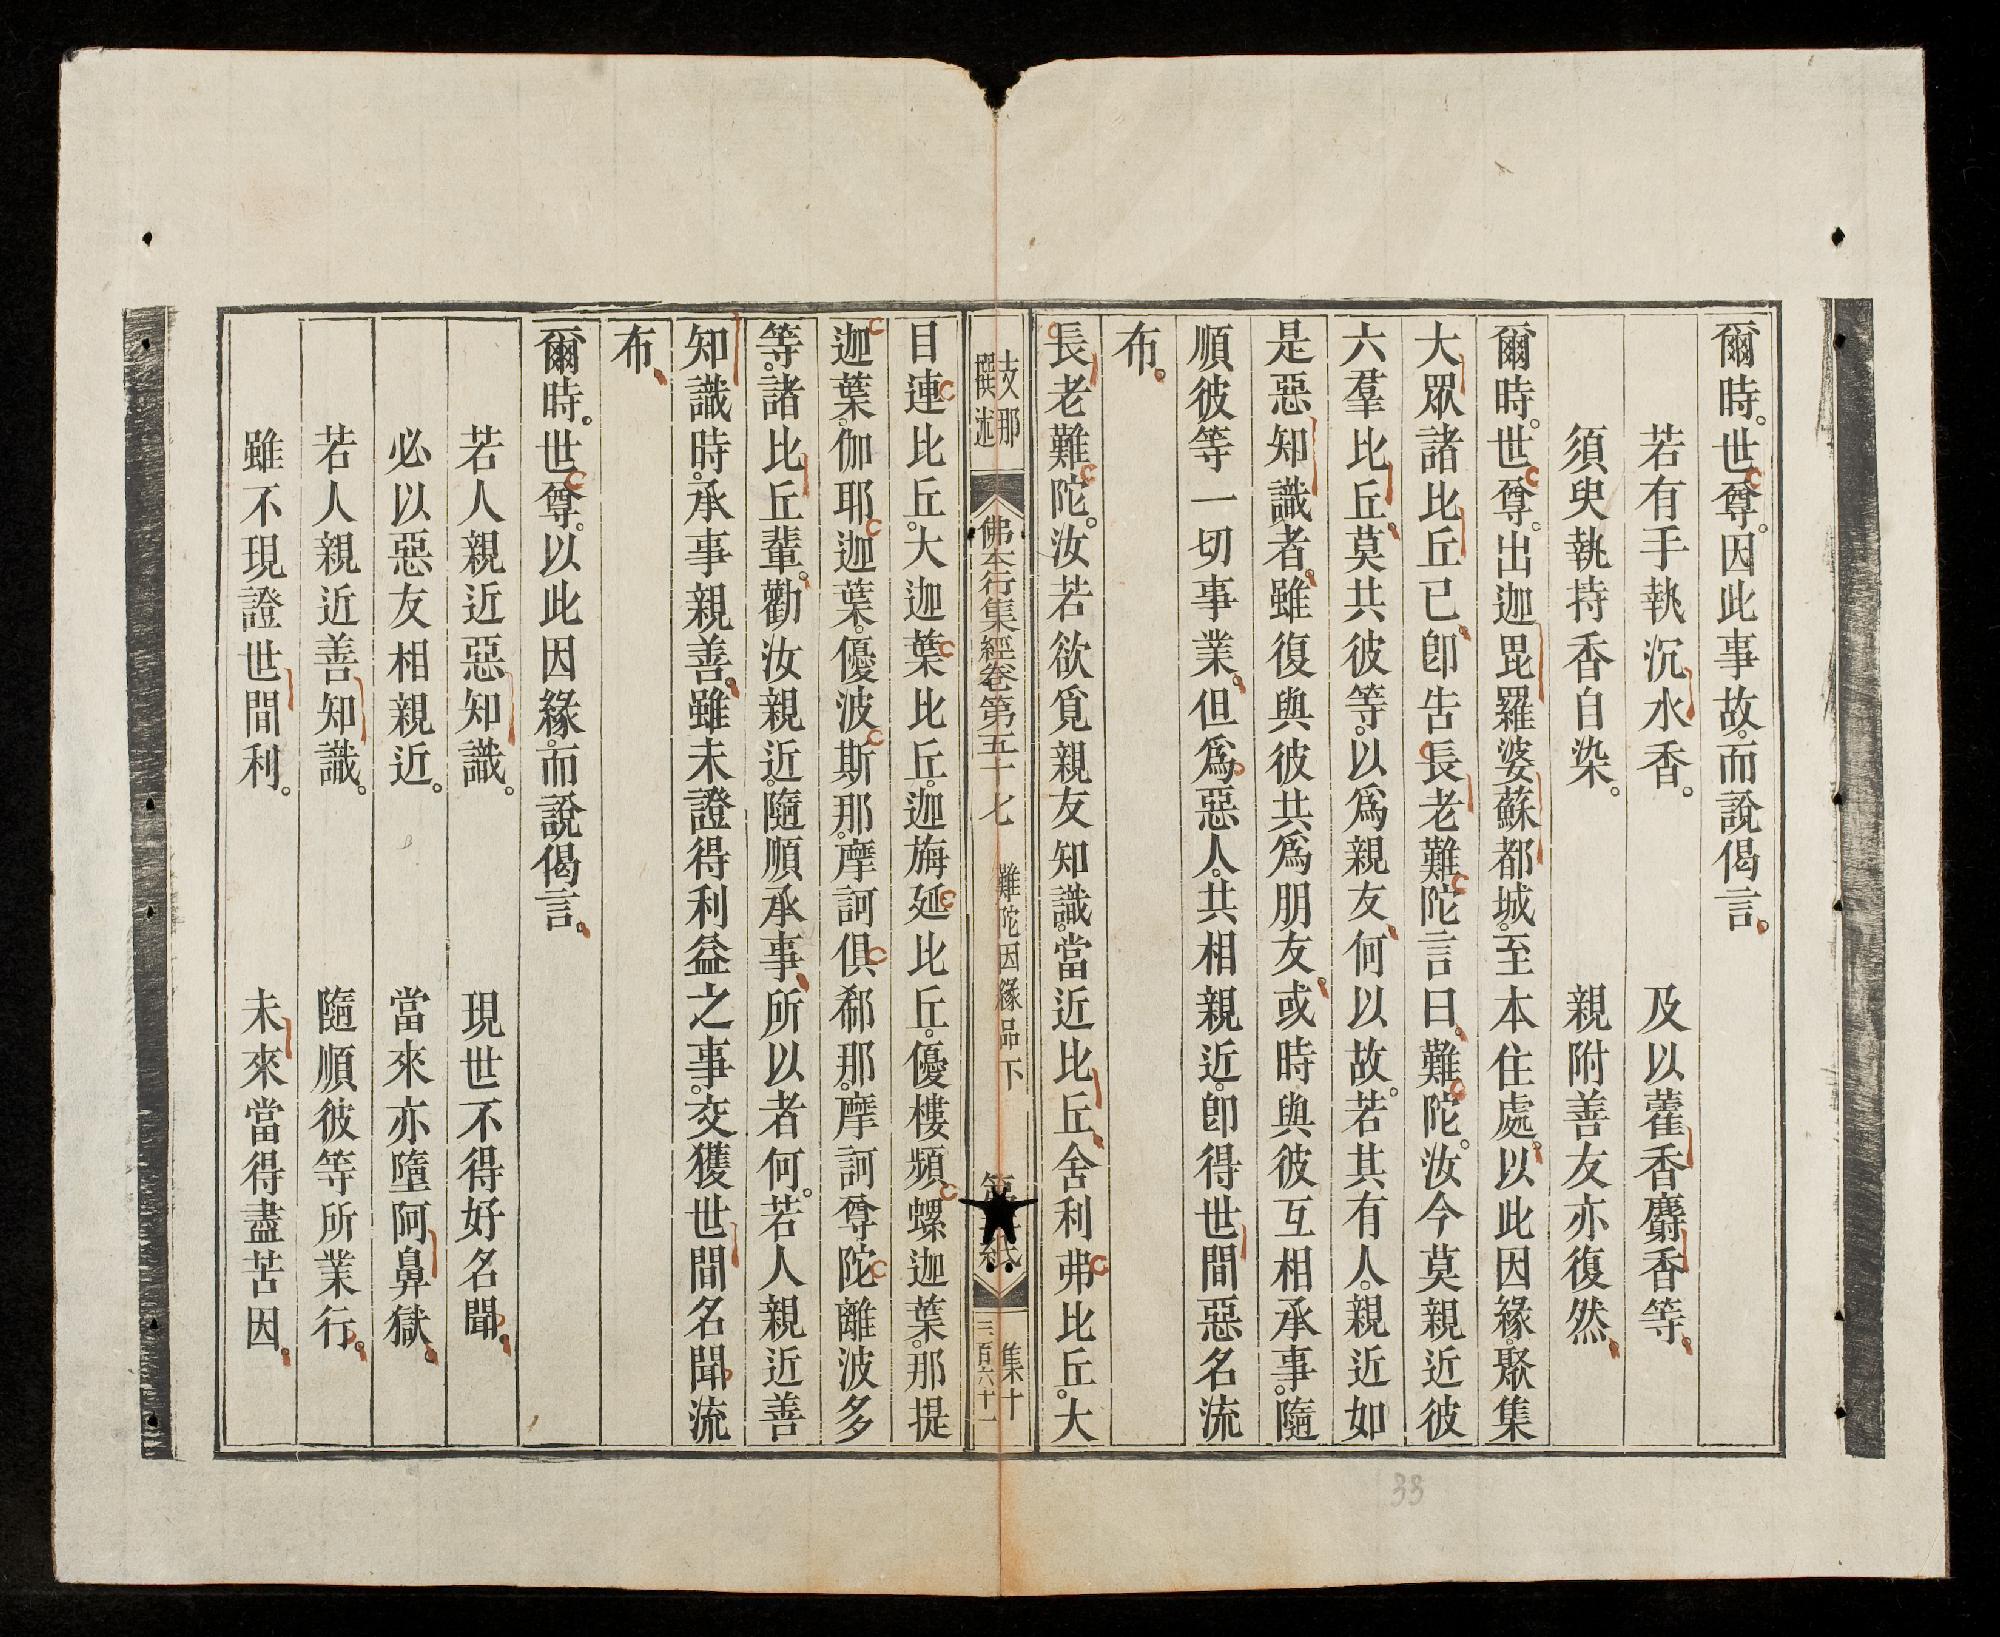 爾時。世尊。因此事故。而說偈言。
若有手執沉水香。　及以藿香麝香等。
須臾執持香自染。　親附善友亦復然。
爾時。世尊。出迦毘羅婆蘇都城。至本住處。以此因緣。聚集
大眾諸比丘已。卽告長老難陀言曰。難陀。汝今莫親近彼
六羣比丘。莫共彼等。以爲親友。何以故。若其有人。親近如
是惡知識者。雖復與彼共爲朋友。或時與彼互相承事。隨
順彼等一切事業。但爲惡人。共相親近。卽得世間惡名流
布。
長老難陀。汝若欲覓親友知識。當近比丘。舍利弗比丘。大
支那
撰述
佛本行集經卷第五十七
難陀因緣品下
集十
三百六十一
目連比丘。大迦葉比丘。迦旃延比丘。優樓頻螺迦葉。那提
迦葉。伽耶迦葉。優波斯那。摩訶俱郗那。摩訶尊陀。離波多
等。諸比丘輩。勸汝親近。隨順承事。所以者何。若人親近善
知識時。承事親善。雖未證得利益之事。交獲世間名聞流
布。
爾時。世尊。以此因緣。而說偈言。
若人親近惡知識。　現世不得好名聞。
必以惡友相親近。　當來亦墮阿鼻獄。
若人親近善知識。　隨順彼等所業行。
雖不現證世間利。　未來當得盡苦因。
33